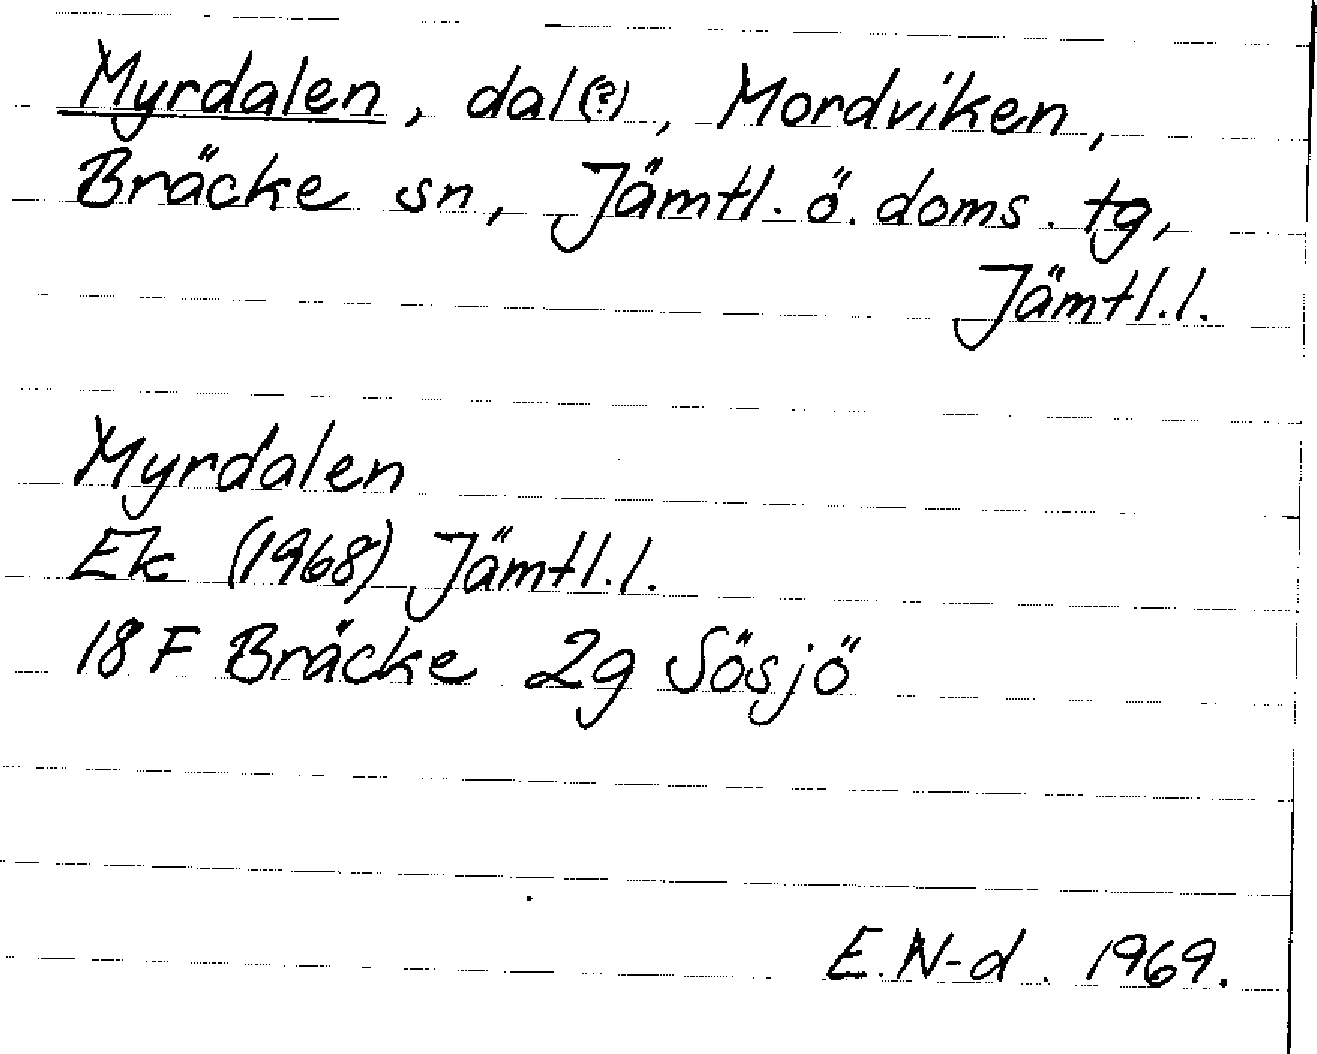 Myrdalen, dal(?), Mordviken,
Bräcke sn, Jämtl. ö. doms. tg,
Jämtl.l.
Myrdalen
Ek (1968) Jämtl.l.
18 F Bräcke 2g Sösjö
E. N-d. 1969.